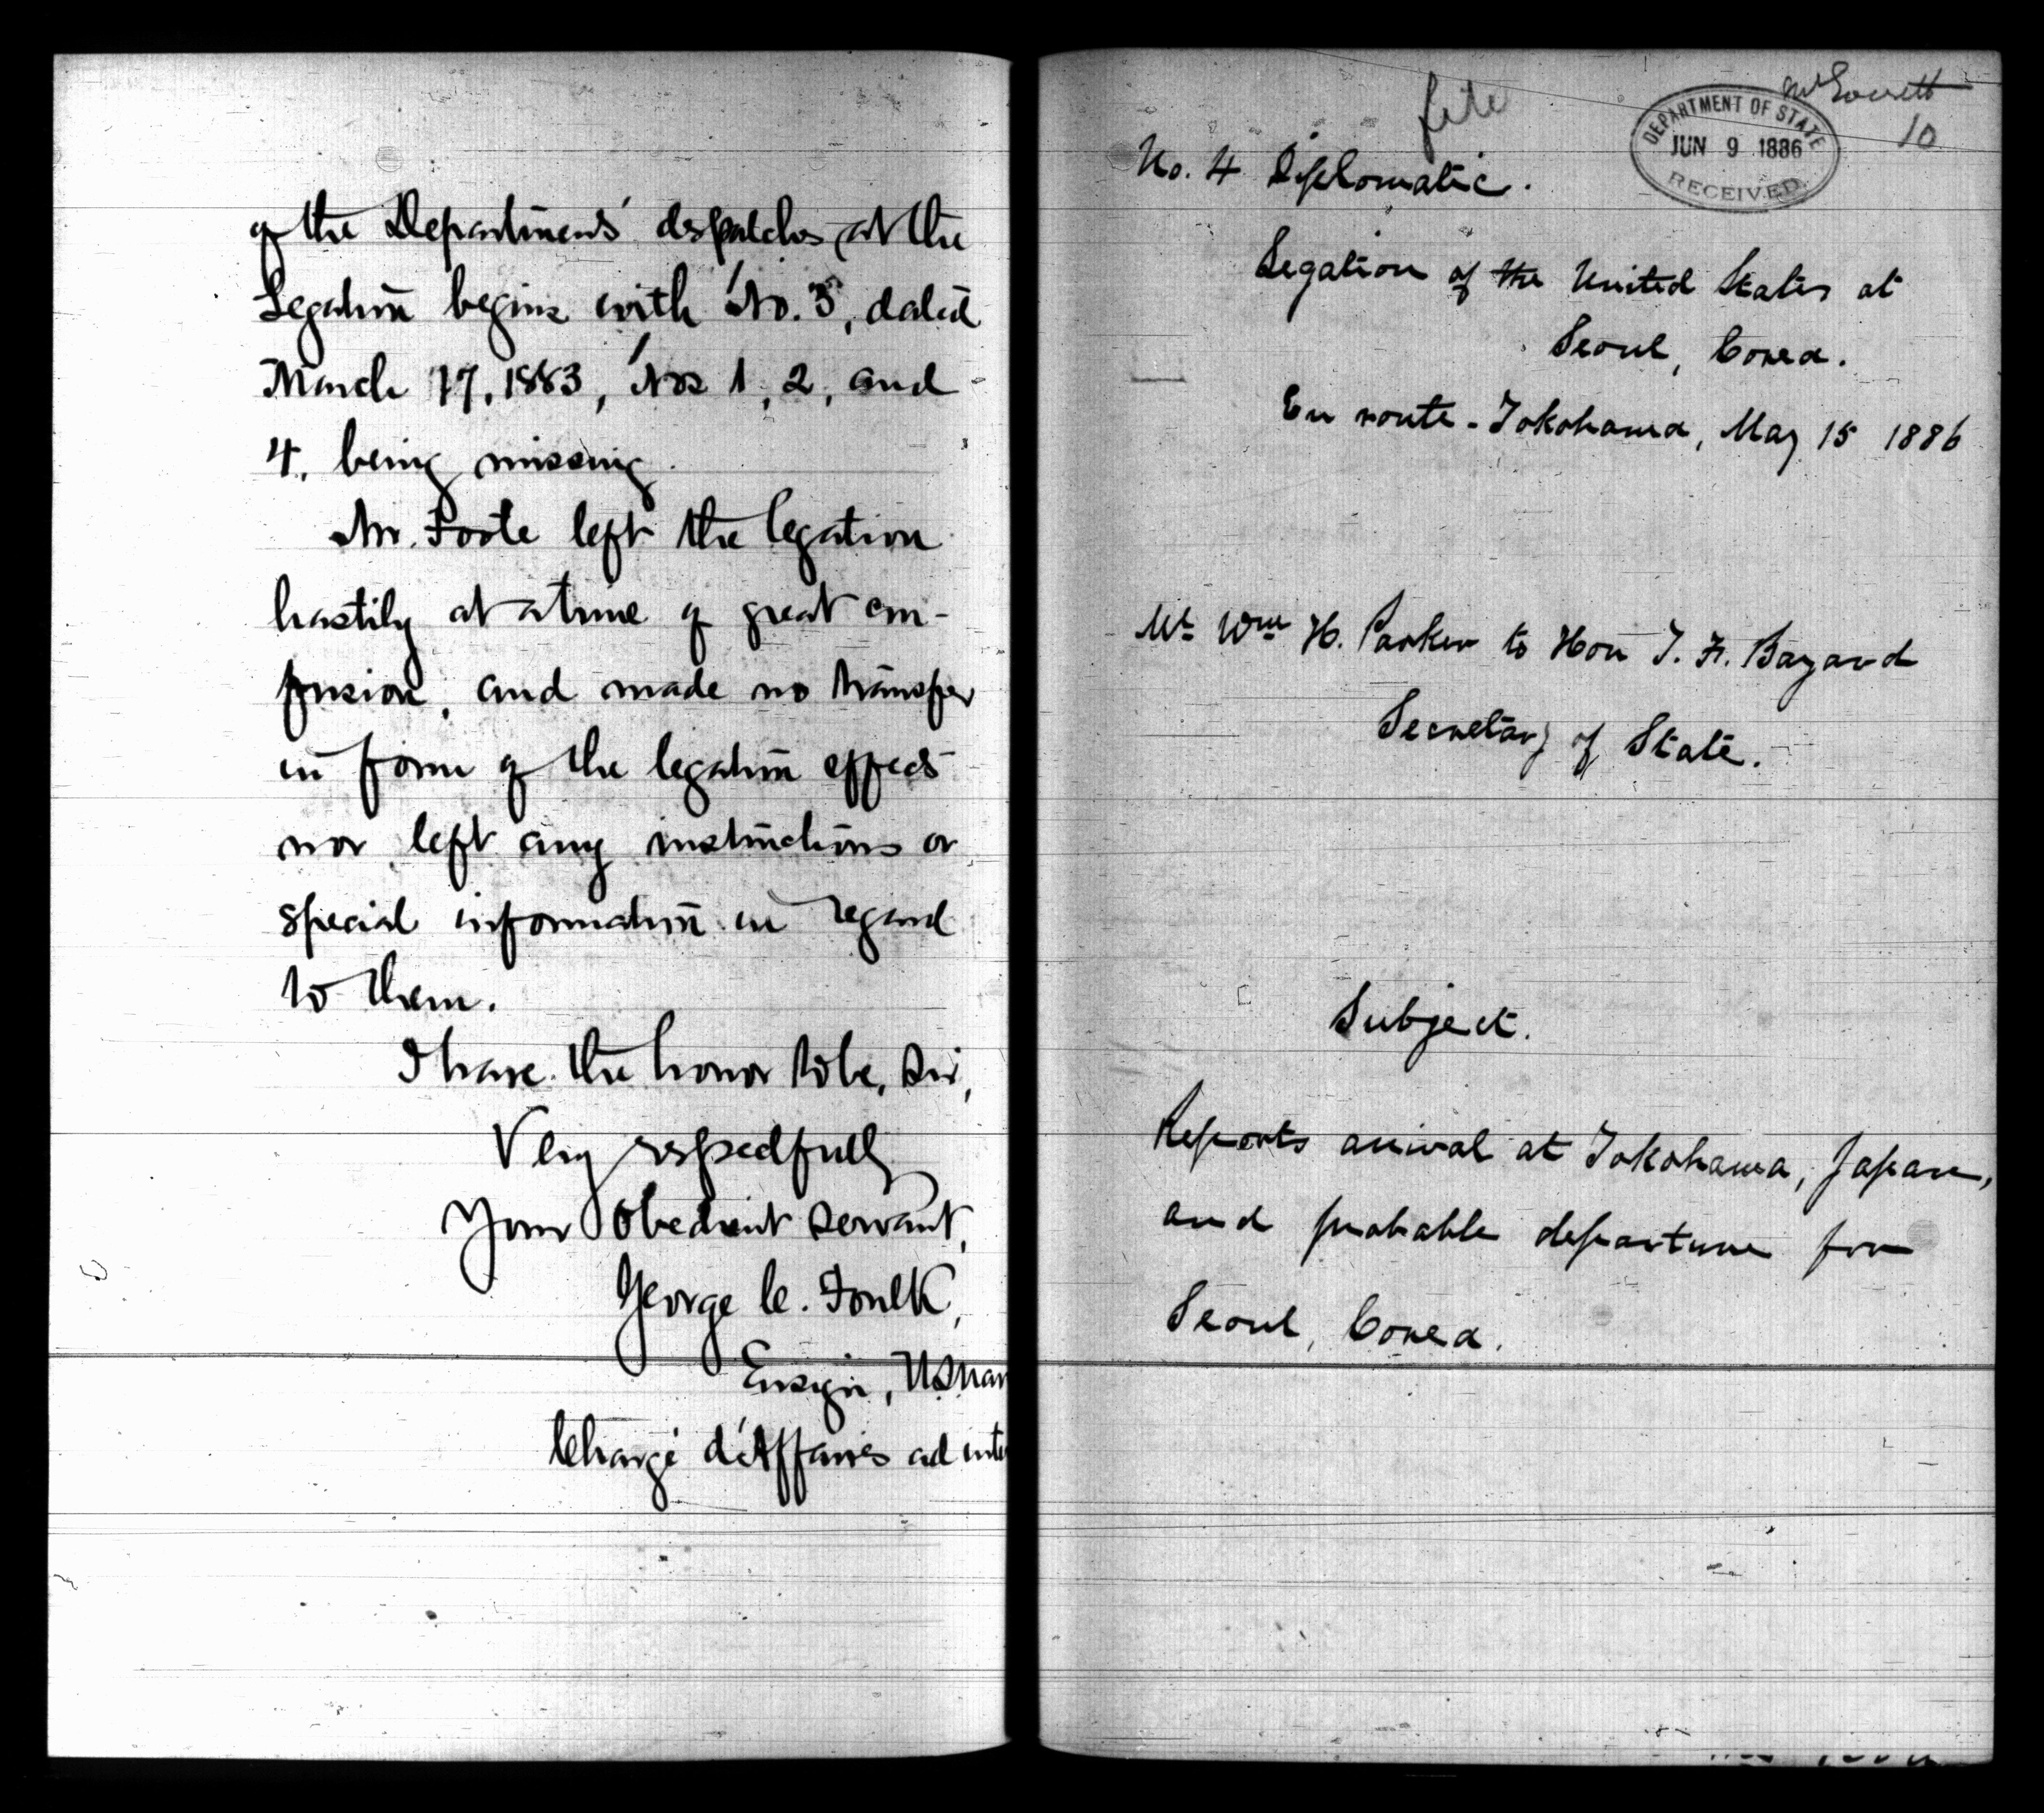 of the Department's despatches at the
Legation begins with No. 3, dated
March 17, 1883, Nos 1, 2, and
4, being missing.
Mr. Foote left the legation
hastily at a time of great con-
fusion, and made no transfer
in form of the legation effects
nor left any instructions or
special information in regard
to them.
I have the honor to be, Sir,
Very respectfully
Your Obedient Servant,
George C. Foulk,
Ensign, U.S. Nav
Chargé d'Affaires ad inte
file
Mr Everett
10
DEPARTMENT OF STATE
JUN 9 1886
RECEIVED
No. 4 Diplomatic.
Legation of the United States at
Seoul, Corea.
En route - Yokohama, May 15 1886
Mr Wm H. Parker to Hon T. F. Bayard
Secretary of State.
Subject.
Reports arrival at Yokohama, Japan,
and probable departure for
Seoul, Corea.